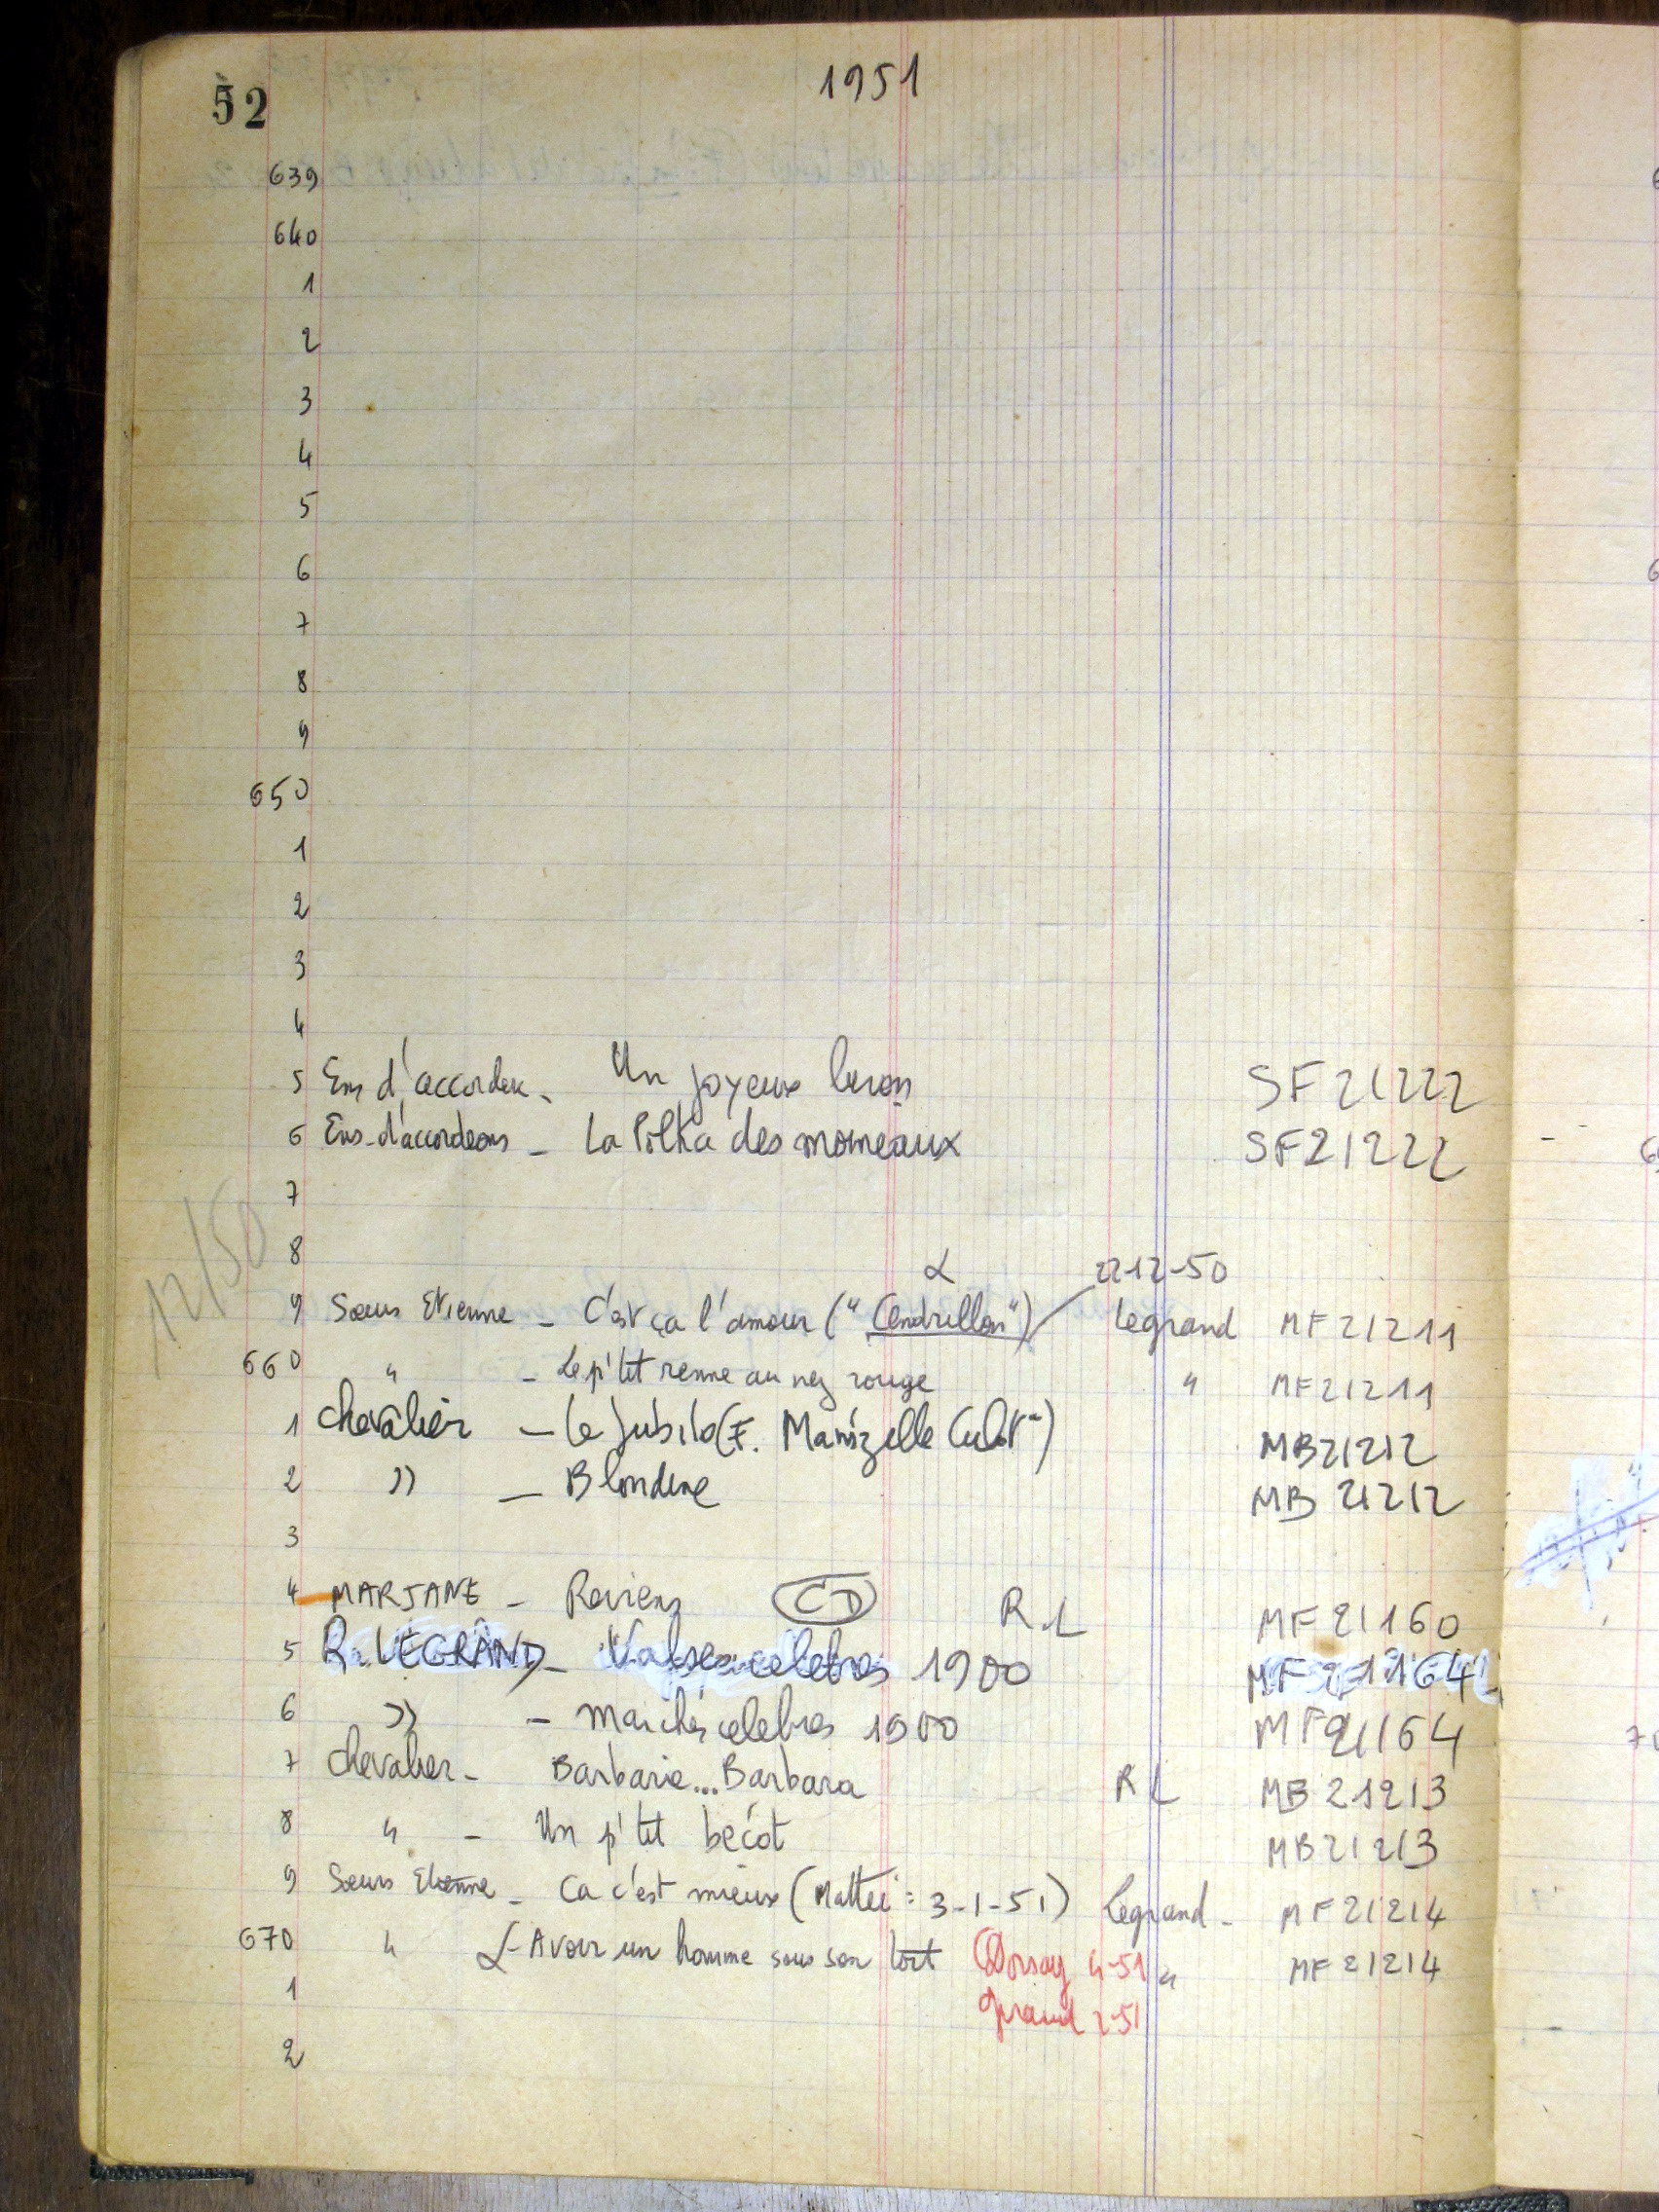 52
1951
639
640
1
2
3
4
5
6
7
8
9
650
1
2
3
4
5 Ens d'accordeo - Un joyeux luron SF 21222
6 Ens-d'accordeons - La Polka des moineaux SF21222
7
12/50
8
22-12-50
9 Sœurs Etienne - C'est ça l'amour ("Cendrillon") Legrand MF 21211
660 " - Le p'tit renne au nez rouge " MF21211
1 Chevalier - Le Jubilo (F. Mam'zelle Culot") MB21212
2 " - Blondine MB 21212
3
4 MARJANE - Reviens CD R.L MF 21160
5 R. LEGRAND - Valses celebres 1900 MF 21164
6 " - marches celebres 1900 MF21164
7 Chevalier - Barbarie... Barbara RL MB 21213
8 " - Un p'tit bécot MB21213
9 Sœurs Etienne - Ca c'est mieux (Mattei = 3-1-51) Legrand - MF 21214
670 " - Avoir un homme sous son toit Dorsay 4-51 " MF 21214
1 2-51
2